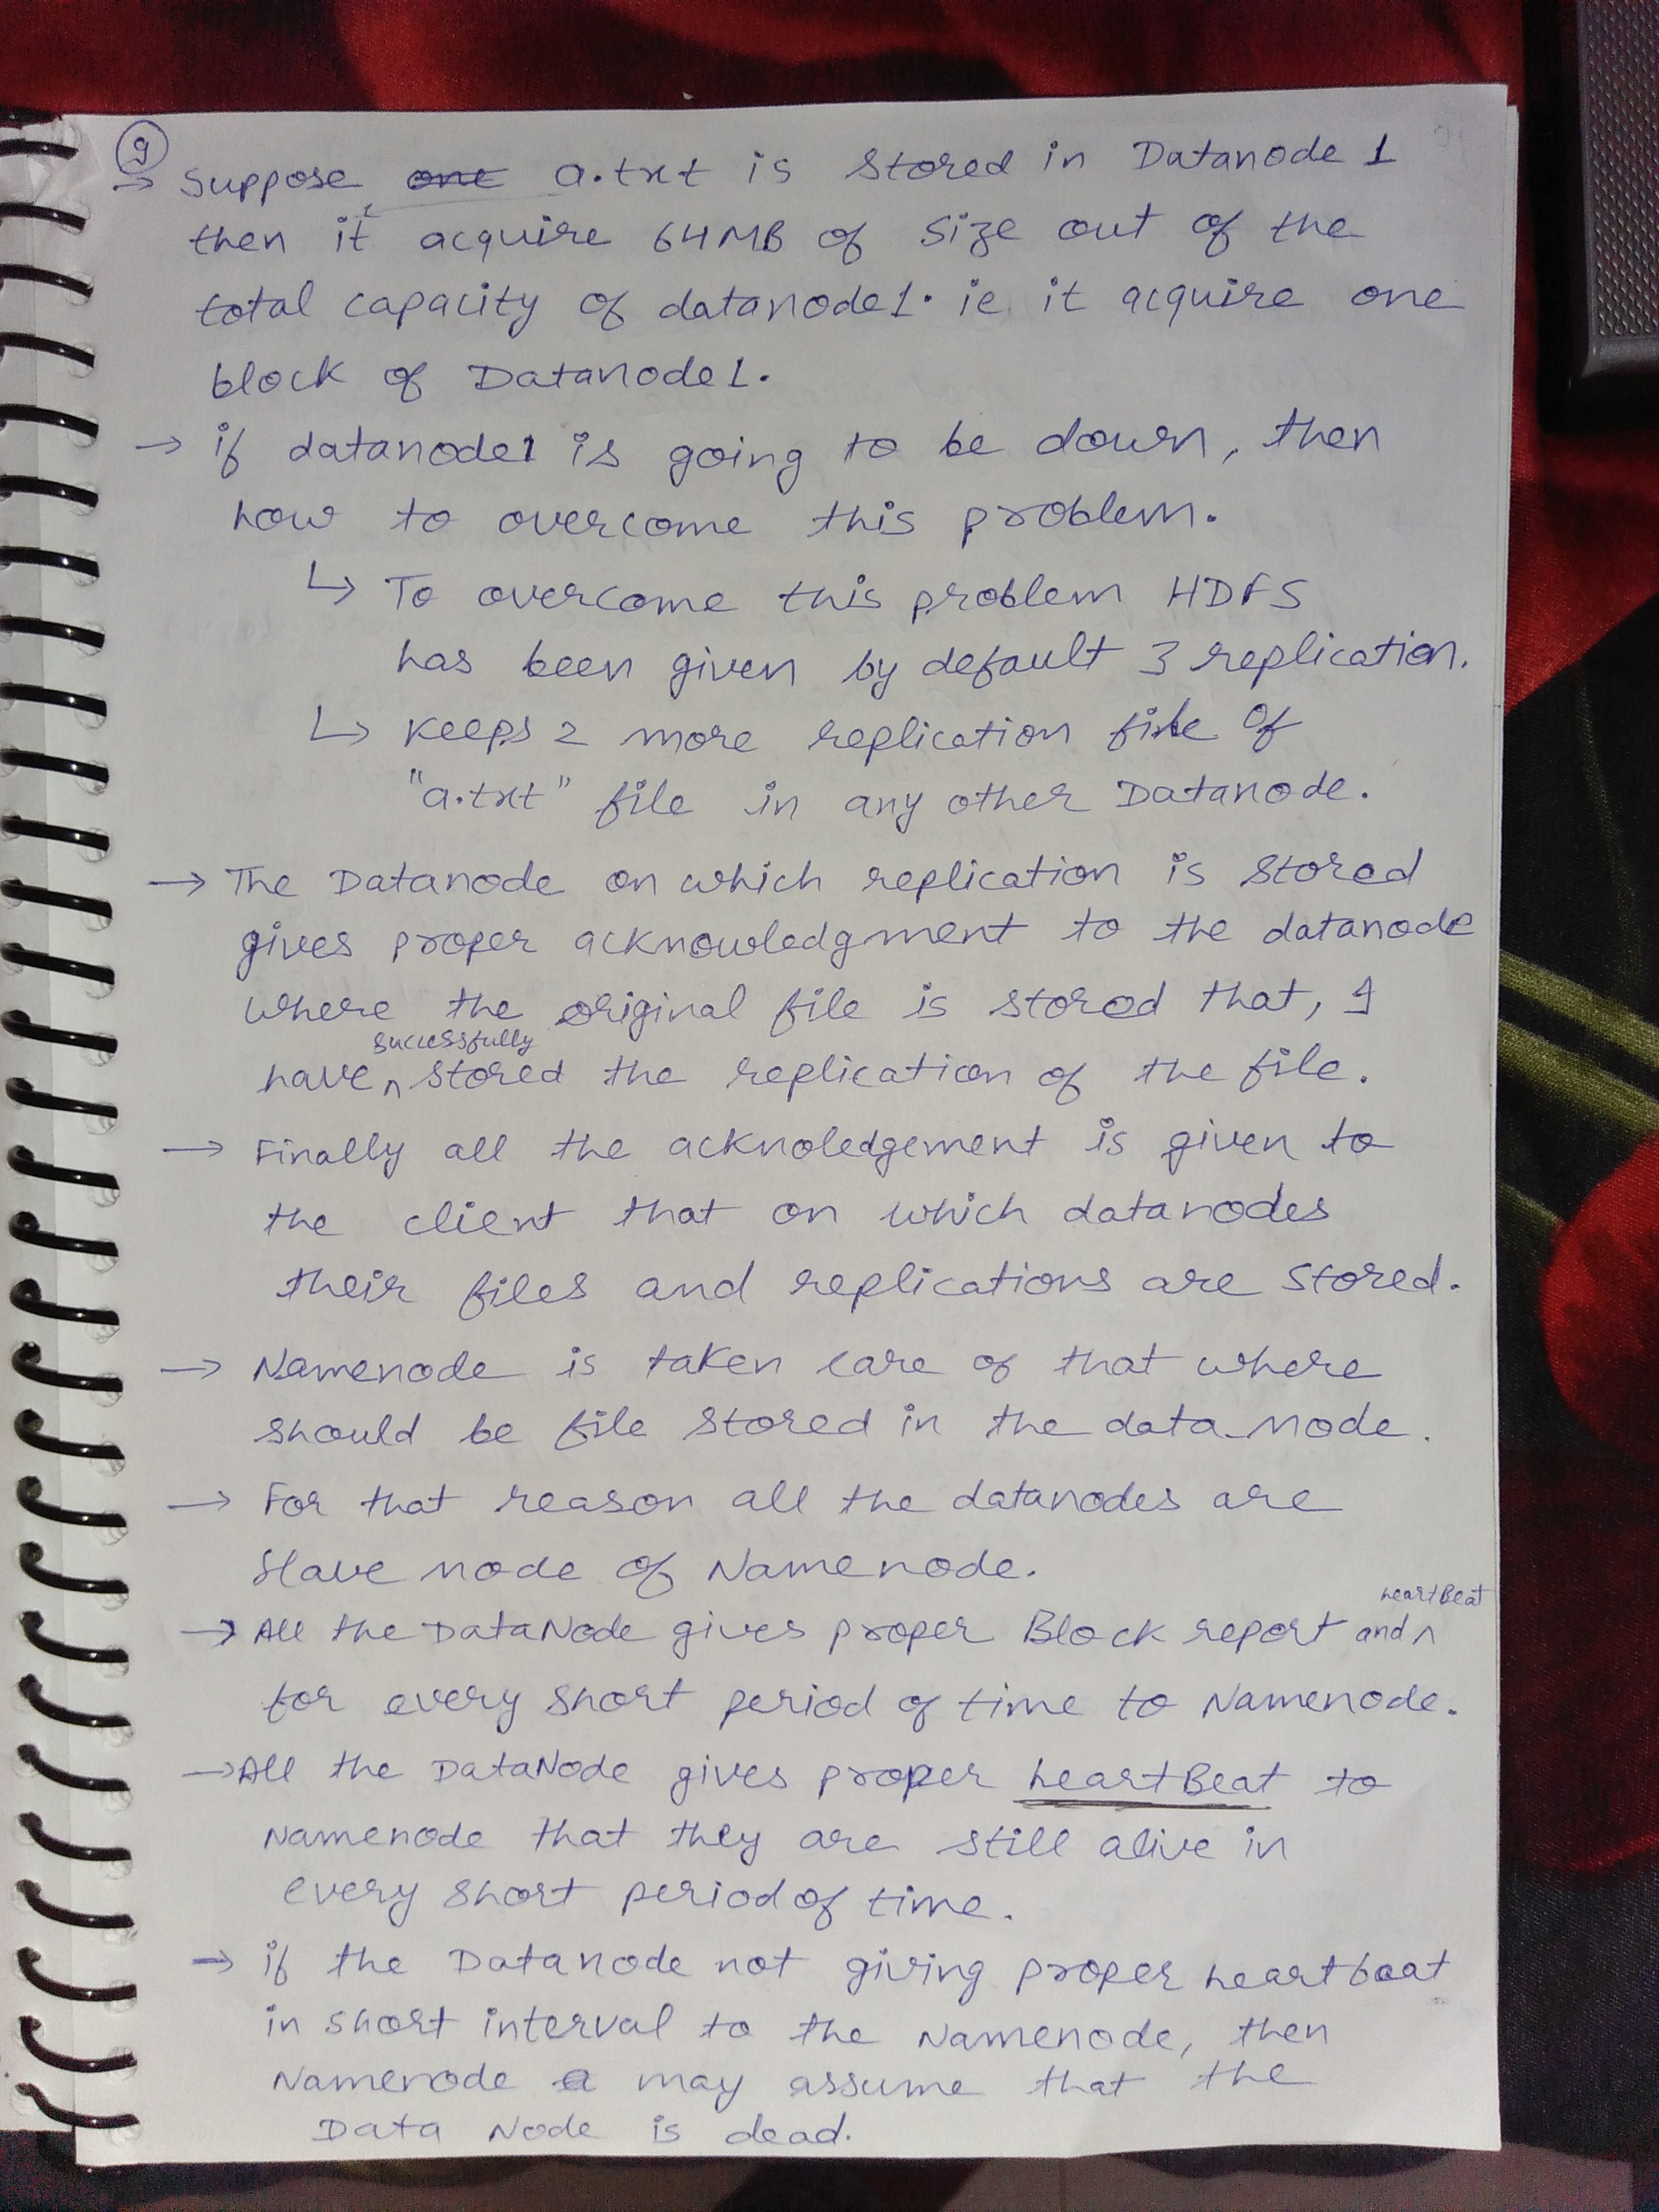 9
→ Suppose, one a.txt is stored in Datanode 1
then it acquire 64MB of size out of the
total capacity of datanode1. ie it acquire one
block of Datanode1.
→ if datanode1 is going to be down, then
how to overcome this problem.
↳ To overcome this problem HDFS
has been given by default 3 replication.
↳ Keeps 2 more replication file of
"a.txt" file in any other Datanode.
→ The Datanode on which replication is stored
gives proper acknowledgment to the datanode
where the original file is stored that, I
successfully
have ^ stored the replication of the file.
→ Finally all the acknoledgement is given to
the client that on which datanodes
their files and replications are stored.
→ Namenode is taken care of that where
should be file stored in the data node.
→ For that reason all the datanodes are
slave node of Namenode.
heartBeat
→ All the DataNode gives proper Block report and ^
for every short period of time to Namenode.
→ All the DataNode gives proper heartBeat to
Namenode that they are still alive in
every short period of time.
→ if the Datanode not giving proper heartbeat
in short interval to the Namenode, then
Namenode a may assume that the
Data Node is dead.